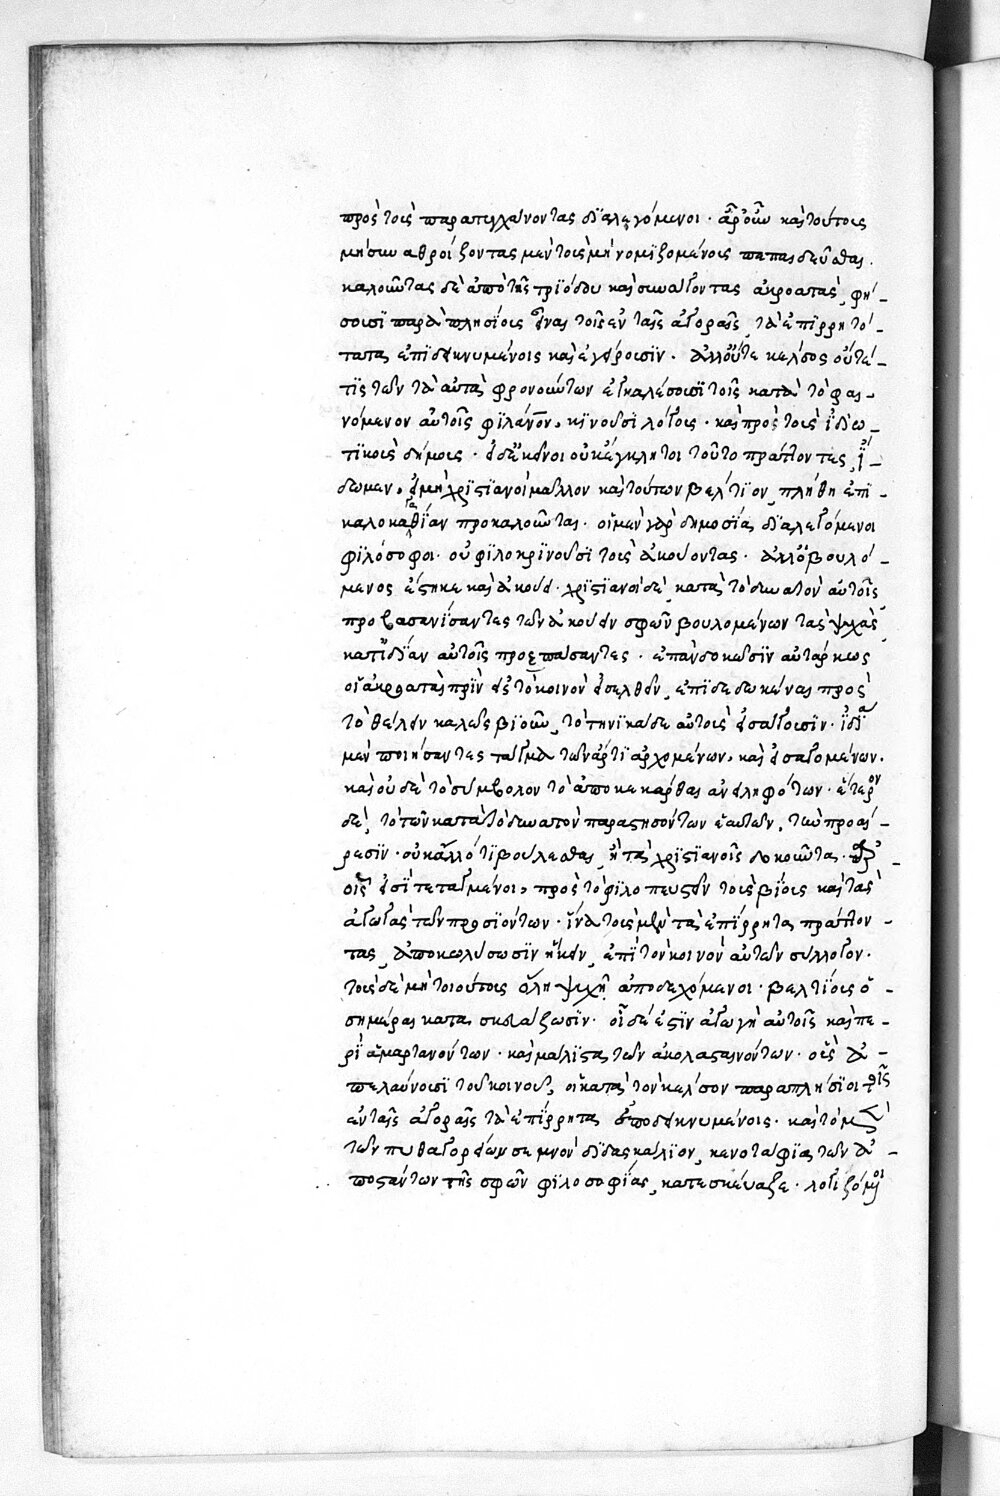 πρὸς τοὺς παρατυγχάνοντας διαλεγόμενοι· ἆρ' οὖν καὶ τούτους
μὴ συναθροίζοντας μὲν τοὺς μὴ νομιζομένους πεπαιδεῦσθαι.
καλοῦντας δὲ ἀπὸ τῆς τριόδου καὶ συνάγοντας ἀκροατὰς, φή-
σουσι παραπλησίους εἶναι τοῖς ἐν ταῖς ἀγοραῖς, τὰ ἐπιρρητό-
τατα ἐπιδεικνυμένοις καὶ ἐγείρουσιν· ἀλλ' οὔτε κέλσος οὔτέ
τις τῶν τὰ αὐτὰ φρονούντων ἐγκαλέσουσι τοῖς κατὰ τὸ φαι-
νόμενον αὐτοῖς φιλάνον, κινοῦσι λόγους· καὶ πρὸς τοὺς ἰδιω-
τικοὺς δήμους· εἰ δ' ἐκεῖνοι οὐκ ἔγκλητοι τοῦτο πράττοντες, ἴ-
δωμεν, εἰ μὴ χριστιανοὶ μᾶλλον καὶ τούτων βέλτιον, πλήθη ἐπὶ
καλοκαγαθίαν προκαλοῦνται· οἱ μὲν γὰρ δημοσία διαλεγόμενοι
φιλόσοφοι· οὐ φιλοκρινοῦσι τοὺς ἀκούοντας· ἀλλ' ὁ βουλό-
μενος ἕστηκε καὶ ἀκούει· χριστιανοὶ δὲ, κατὰ τὸ δυνατὸν αὐτοῖς,
προβασανίσαντες τῶν ἀκούειν σφῶν βουλομένων τὰς ψυχὰς
κατ' ἰδίαν αὐτοῖς προεπᾴσαντες· ἐπὰν δοκῶσιν αὐτάρκως
οἱ ἀκροαταὶ πρὶν εἰς τὸ κοινὸν εἰσελθεῖν, ἐπιδεδωκέναι πρὸς
τὸ θέλειν καλῶς βιοῦν, τὸ τηνικάδε αὐτοὺς εἰσάγουσιν· ἰδίᾳ
μὲν ποιήσαντες τάγμα τῶν ἄρτι ἀρχομένων, καὶ εἰσαγομένων.
καὶ οὐδὲ τὸ σύμβολον τὸ ἀποκεκαρθαι ἀνειληφότων· ἕτερον
δὲ, τὸ τῶν κατὰ τὸ δυνατὸν παραστησόντων ἑαυτῶν, τὴν προαί-
ρεσιν· οὐκ ἄλλό τι βούλεσθαι, ἢ τὰ χριστιανοῖς δοκοῦντα· παρ'
οἷς εἰσὶ τεταγμένοι, πρὸς τὸ φιλοπευστεῖν τοὺς βίους καὶ τὰς
ἀγωγὰς τῶν προσιόντων· ἵνα τοὺς μὲν τὰ ἐπίρρητα πράττον-
τας, ἀποκωλύσωσιν ἥκειν, ἐπὶ τὸν κοινὸν αὐτῶν σύλλογον·
τοὺς δὲ μὴ τοιούτους ὅλῃ ψυχῇ ἀποδεχόμενοι· βελτίους ὁ-
σημέραι κατασκευάζωσιν· οἵα δέ ἐστιν ἀγωγὴ αὐτοῖς καὶ πε-
ρὶ ἁμαρτανόντων· καὶ μάλιστα τῶν ἀκολασταινόντων· οὓς ἀ-
πελαύνουσι τοῦ κοινοῦ, οἱ κατὰ τὸν κέλσον παραπλήσιοι τοῖς
ἐν ταῖς ἀγοραῖς τὰ ἐπίρρητα ἀποδεικνυμένοις· καὶ τὸ μὲν
τῶν πυθαγορείων σεμνὸν διδασκάλιον, κενοτάφια τῶν ἀ-
ποστάντων τῆς σφῶν φιλοσοφίας, κατεσκεύαζε· λογιζόμενοι